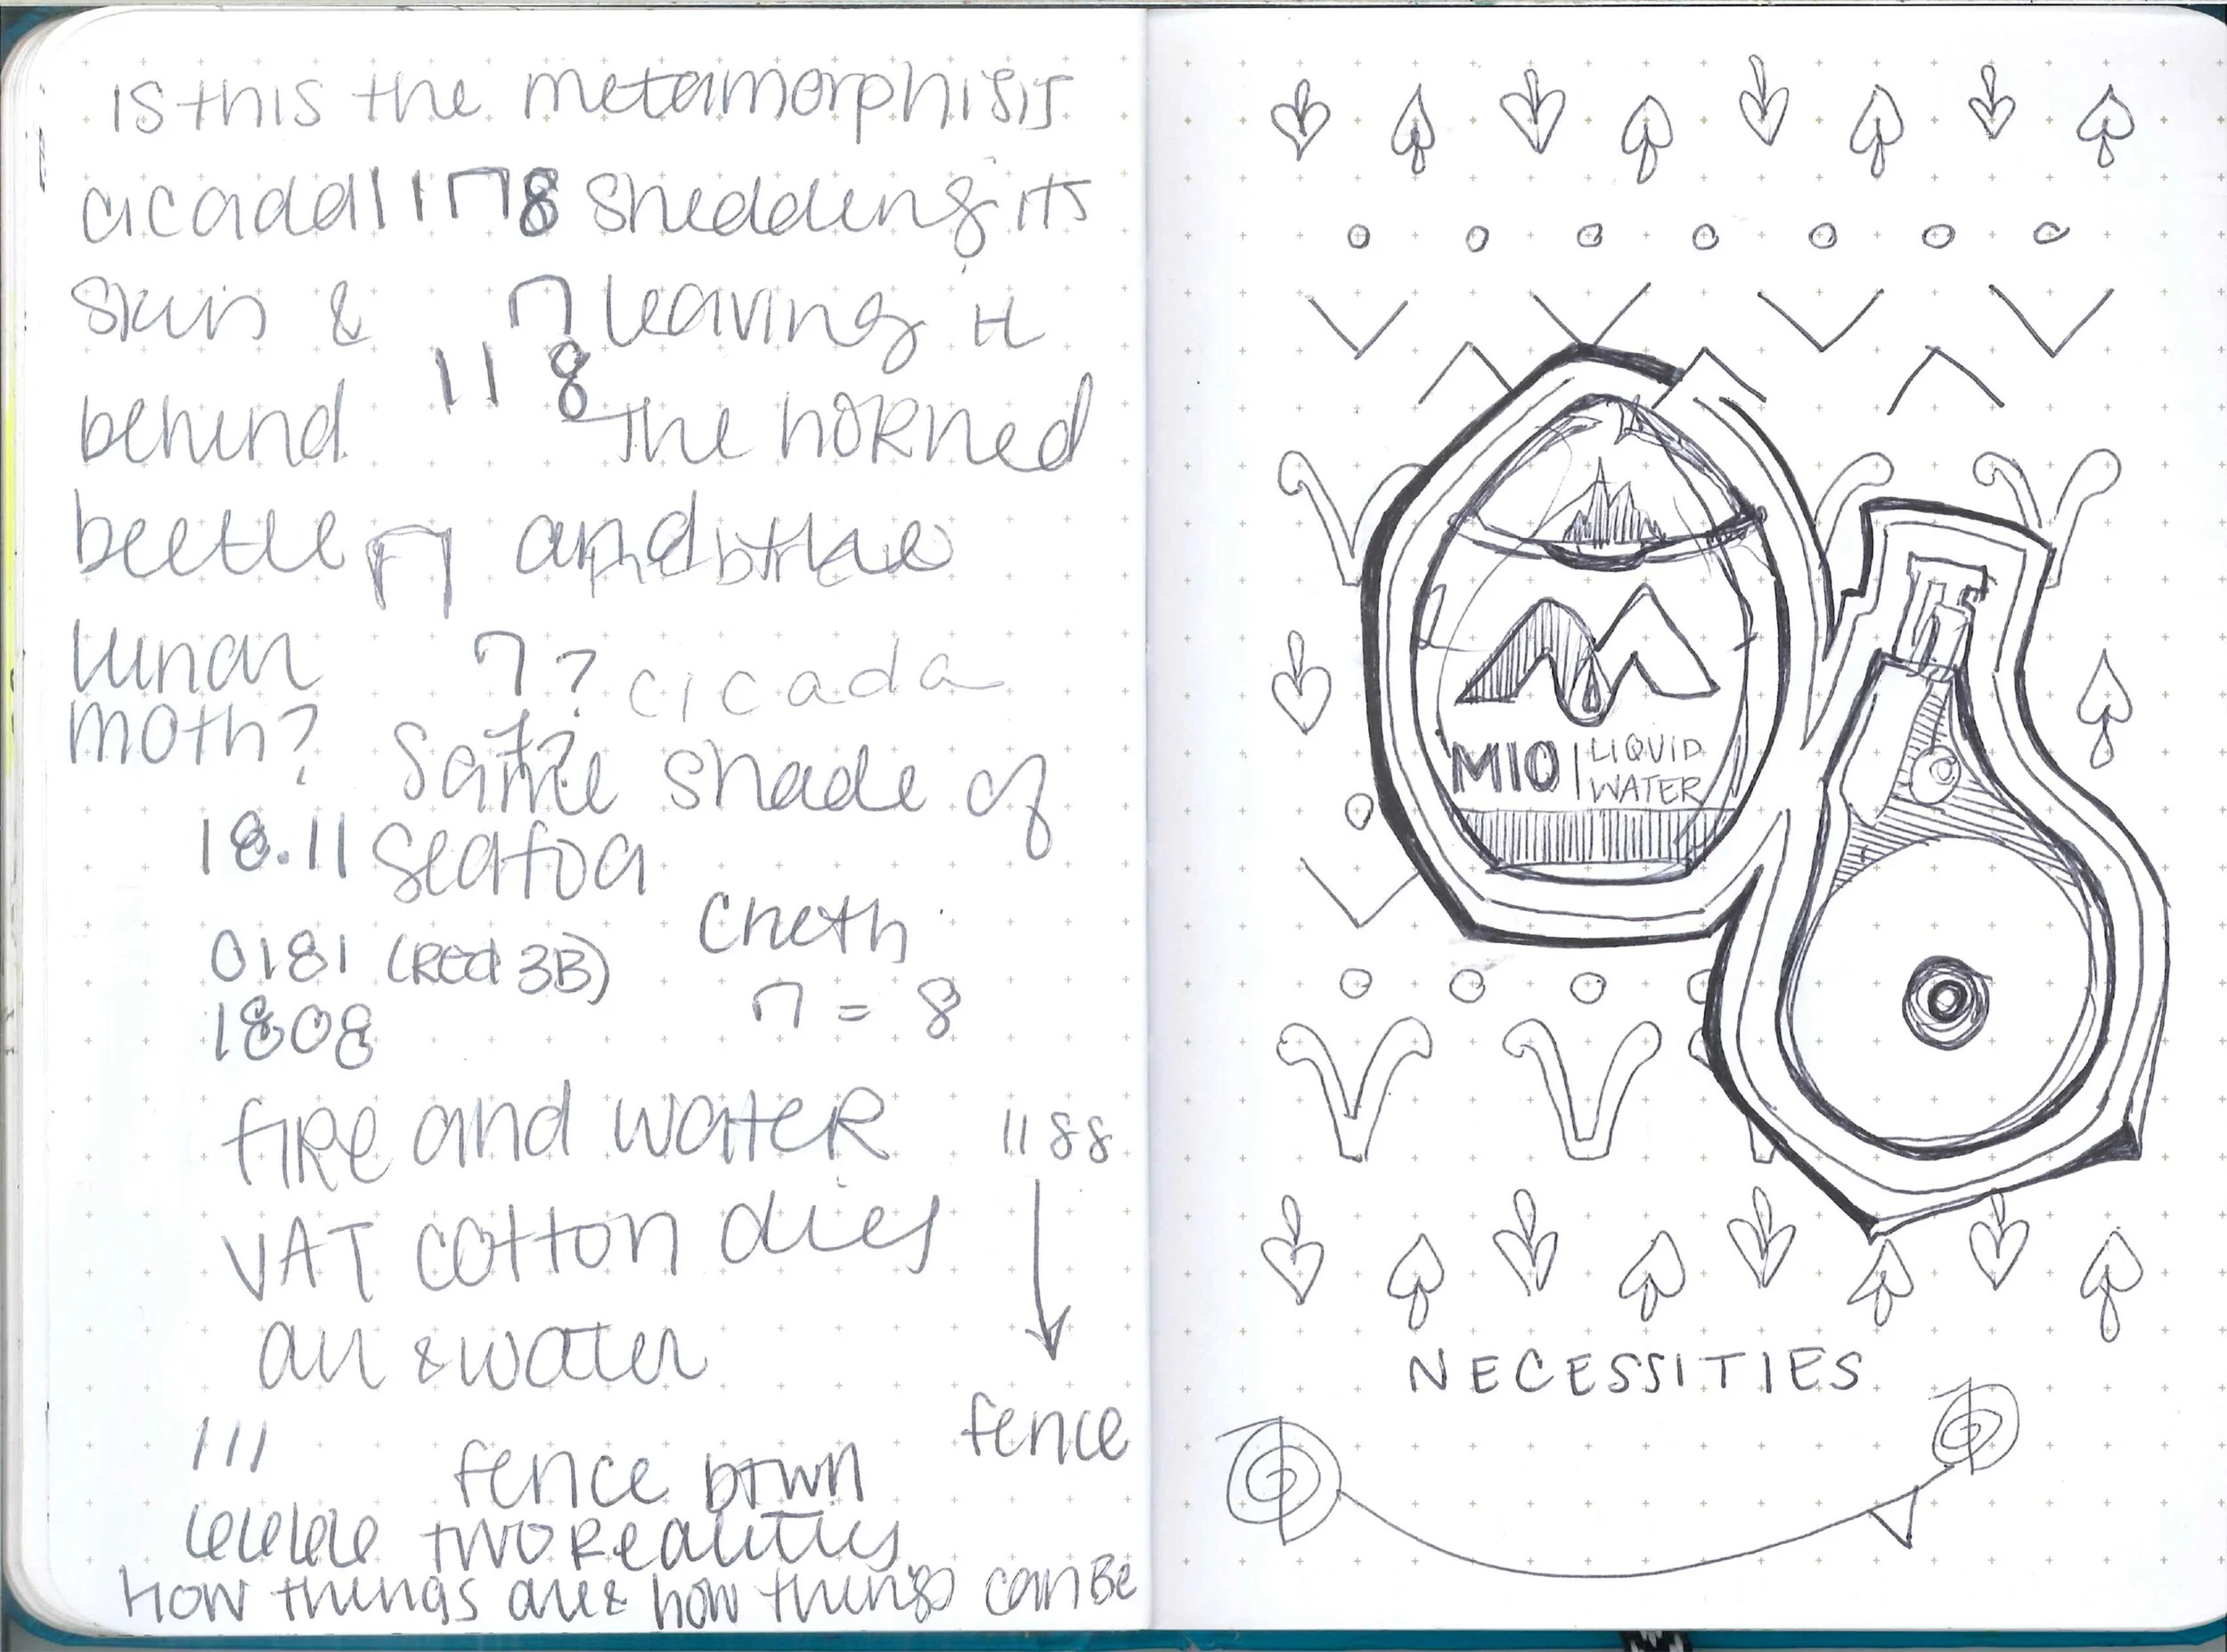 is this the metamorphisis
cicada 11ח8 shedding its
skin & ח leaving it
behind 118 The horned
beetle ח and the
lunar ח? cicada
moth? same shade of
18.11 seafoa
0181 (Red 3B) Cheth
1808 ח = 8
fire and water 1188
VAT cotton dies
air & water
111 fence
fence btwn
two realities
How things are & how things can be
MIO | LIQUID
WATER
NECESSITIES